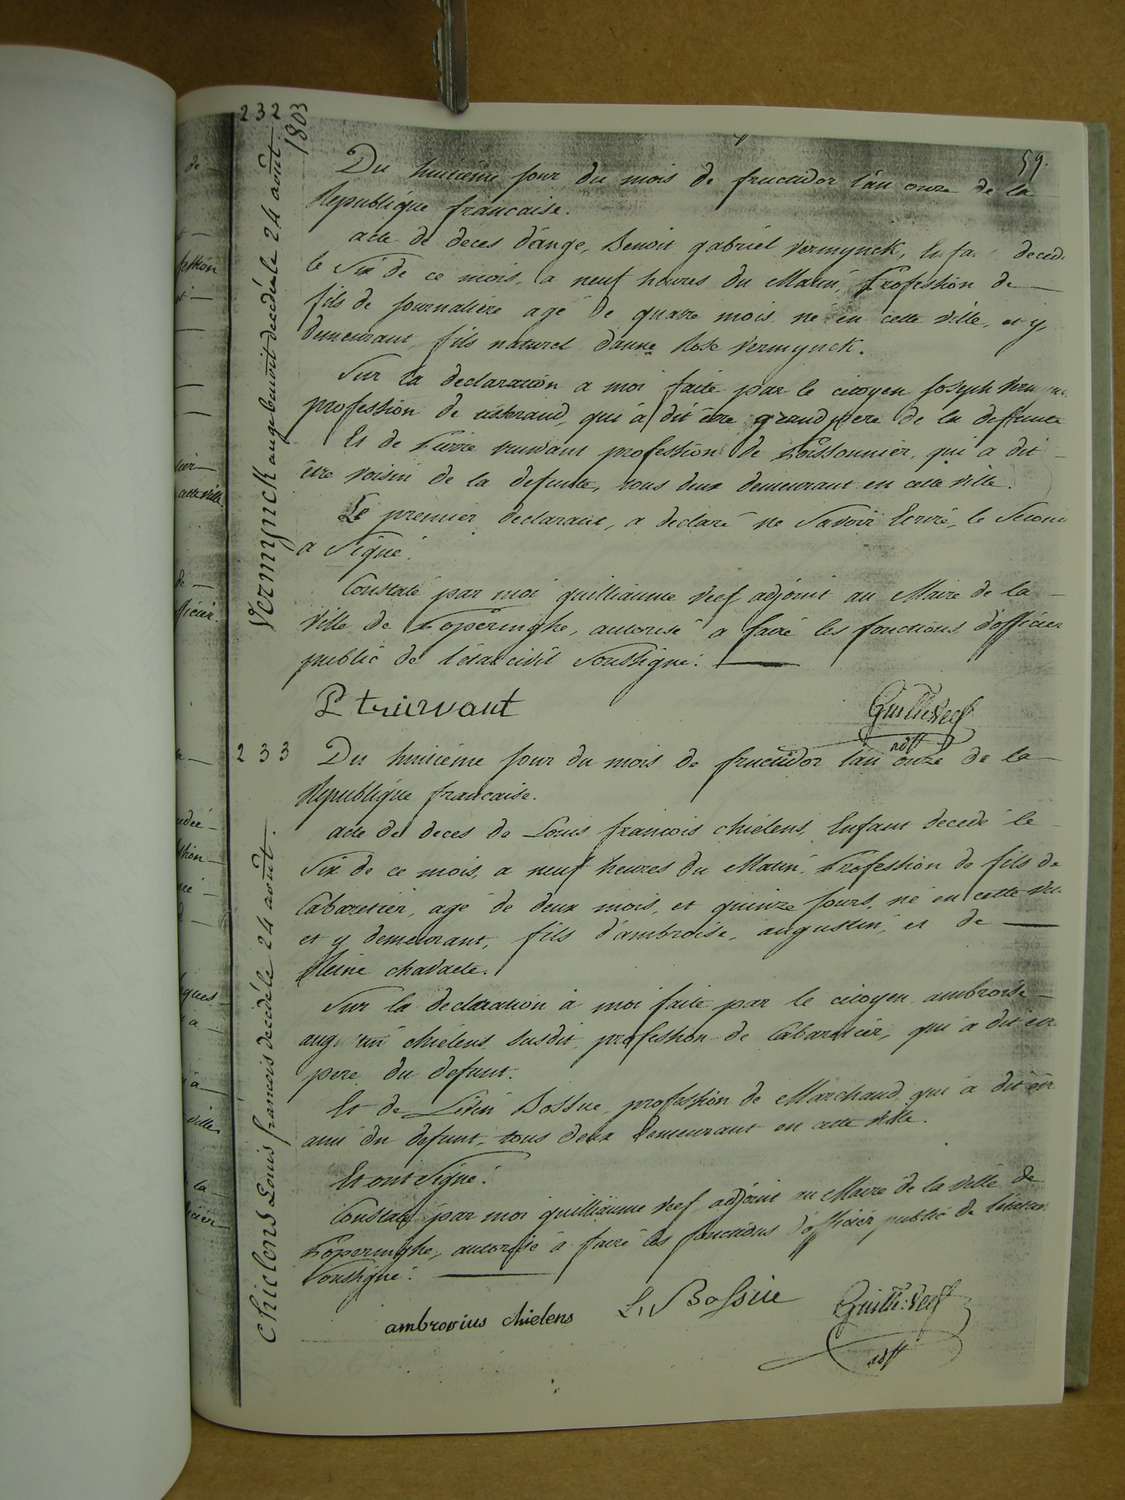 232
1803
59.
Vermynck ange benoit decédé le 24 août
Du huitieme jour du mois de fructidor l'an onze de la
Republique francaise.
acte de deces d'ange, Benoit gabriel vermynck, Enfa decedé
le Six de ce mois, a neuf heures du Matin, Profession de
fils de journaliere agé de quatre mois né en cette ville, et y
demeurant fils naturel d'anne Rose vermynck.
Sur la declaration a moi faite par le citoyen joseph verm
profession de, qui a dit être grand pere de la deffunte
Et de Pierre profession de Poissonnier, qui a dit
être voisin de la defunte, tous deux demeurant en cette ville.
Le premier declarant, a declaré ne Savoir Ecrire, le Second
a Signé.
Constaté par moi guilliaume veef adjoint au Maire de la
ville de Poperinghe, autorisé a faire les fonctions d'officier
public de l'état civil Soussigné.
P truwant
Guill: Veef
adjt
233
chielens Louis francois decédé le 24 août.
Du huitieme jour du mois de fructidor l'an onze de la
Republique francaise.
acte de deces de Louis francois chielens, Enfant decedé le
Six de ce mois, a neuf heures du Matin, Profession de fils de
Cabaretier, agé de deux mois, et quinze jours, né en cette vil
et y demeurant, fils d'ambroise, augustin, et de
Reine
Sur la declaration à moi faite par le citoyen ambroise
aug tin chielens susdit, profession de Cabaretier, qui a dit être
pere du defunt.
Et de Livin Bossue, profession de Marchand qui a dit être
ami du defunt, tous deux demeurant en cette ville.
Et ont Signé.
Constaté par moi guilliaume veef, adjoint au Maire de la ville de
Poperinghe, autorisé a faire les fonctions d'officier public de l'état
Soussigné.
ambrosius chielens
L. Bossue
Guill: Veef
adjt